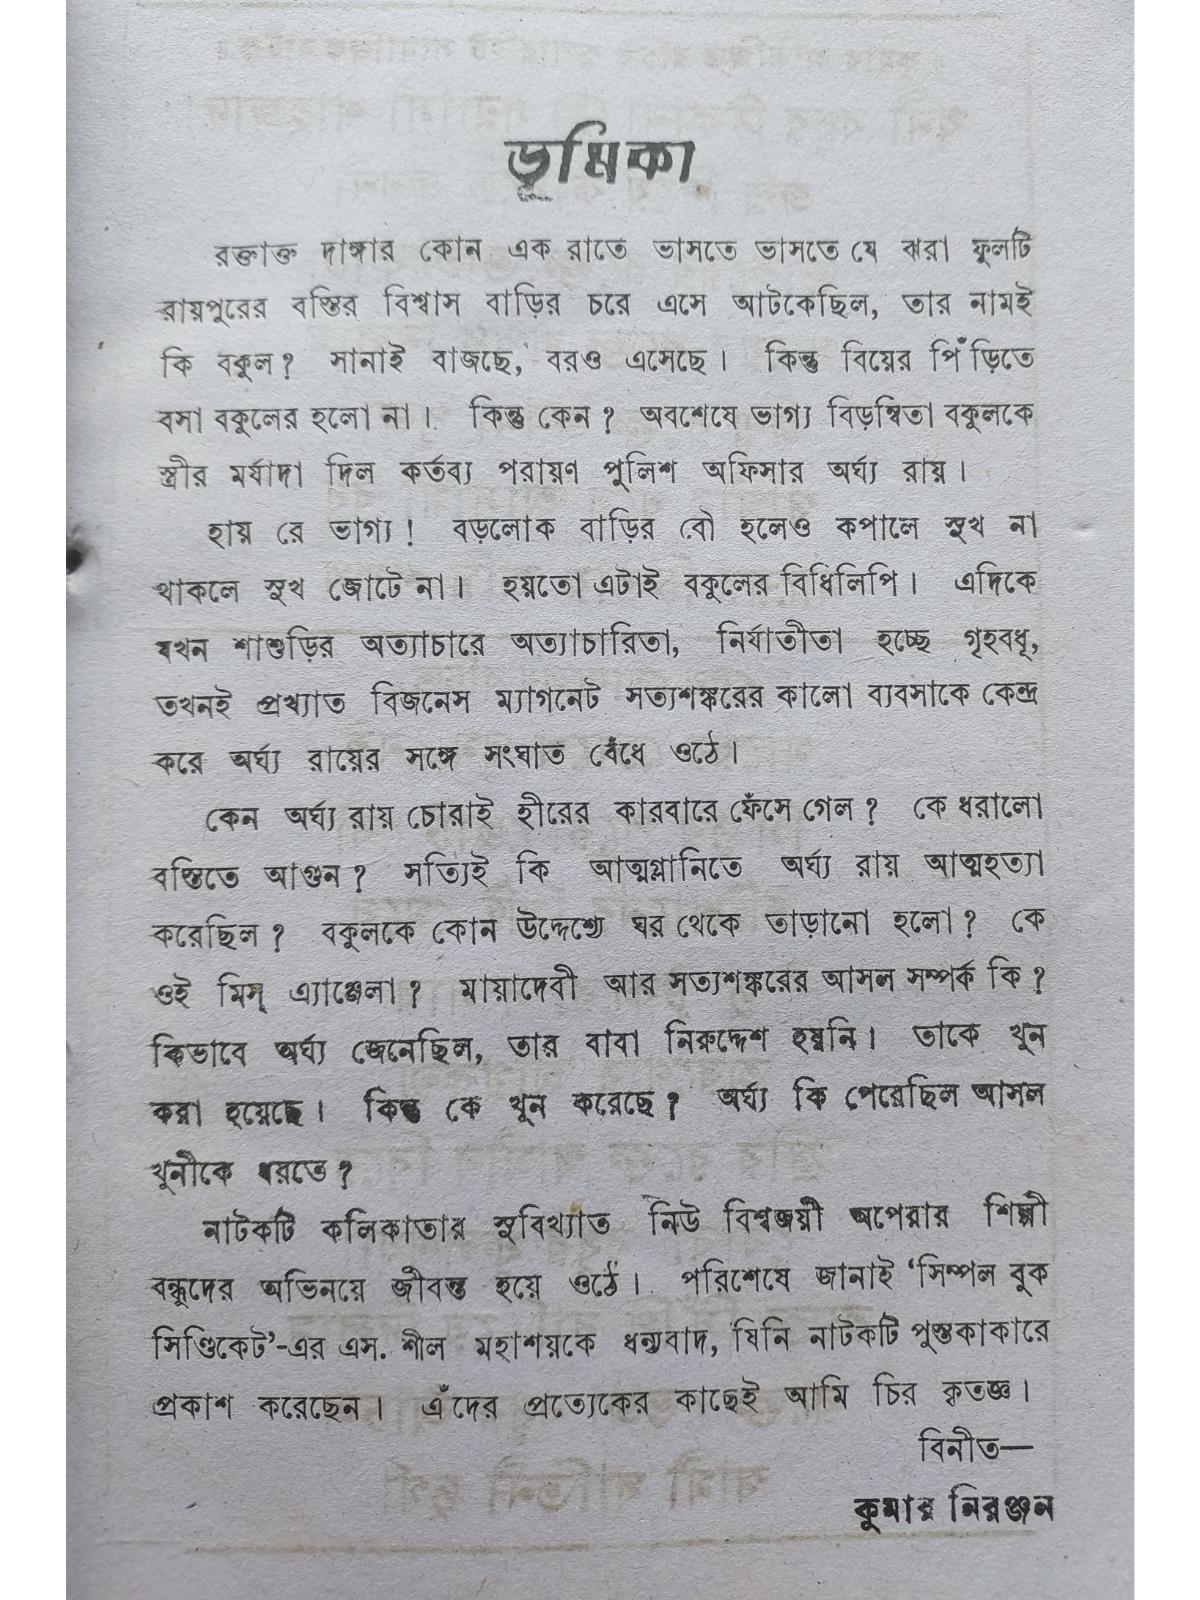 ভূমিকা
রক্তাক্ত দাঙ্গার কোন এক রাতে ভাসতে ভাসতে যে ঝরা ফুলটি
রায়পুরের বস্তির বিশ্বাস বাড়ির চরে এসে আটকেছিল, তার নামই
কি বকুল? সানাই বাজছে, বরও এসেছে। কিন্তু বিয়ের পিঁড়িতে
বসা বকুলের হলো না। কিন্তু কেন? অবশেষে ভাগ্য বিড়ম্বিতা বকুলকে
স্ত্রীর মর্যাদা দিল কর্তব্য পরায়ণ পুলিশ অফিসার অর্ঘ্য রায়।
হায় রে ভাগ্য! বড়লোক বাড়ির বৌ হলেও কপালে সুখ না
থাকলে সুখ জোটে না। হয়তো এটাই বকুলের বিধিলিপি। এদিকে
যখন শাশুড়ির অত্যাচারে অত্যাচারিতা, নির্যাতীতা হচ্ছে গৃহবধূ,
তখনই প্রখ্যাত বিজনেস ম্যাগনেট সত্যশঙ্করের কালো ব্যবসাকে কেন্দ্র
করে অর্ঘ্য রায়ের সঙ্গে সংঘাত বেঁধে ওঠে।
কেন অর্ঘ্য রায় চোরাই হীরের কারবারে ফেঁসে গেল? কে ধরালো
বস্তিতে আগুন? সত্যিই কি আত্মগ্লানিতে অর্ঘ্য রায় আত্মহত্যা
করেছিল? বকুলকে কোন উদ্দেশ্যে ঘর থেকে তাড়ানো হলো? কে
ওই মিস্ এ্যাঞ্জেলা? মায়াদেবী আর সত্যশঙ্করের আসল সম্পর্ক কি?
কিভাবে অর্ঘ্য জেনেছিল, তার বাবা নিরুদ্দেশ হয়নি। তাকে খুন
করা হয়েছে। কিন্তু কে খুন করেছে? অর্ঘ্য কি পেরেছিল আসল
খুনীকে ধরতে?
নাটকটি কলিকাতার সুবিখ্যাত নিউ বিশ্বজয়ী অপেরার শিল্পী
বন্ধুদের অভিনয়ে জীবন্ত হয়ে ওঠে। পরিশেষে জানাই ‘সিম্পল বুক
সিণ্ডিকেট’-এর এস. শীল মহাশয়কে ধন্যবাদ, যিনি নাটকটি পুস্তকাকারে
প্রকাশ করেছেন। এঁদের প্রত্যেকের কাছেই আমি চির কৃতজ্ঞ।
বিনীত—
কুমার নিরঞ্জন